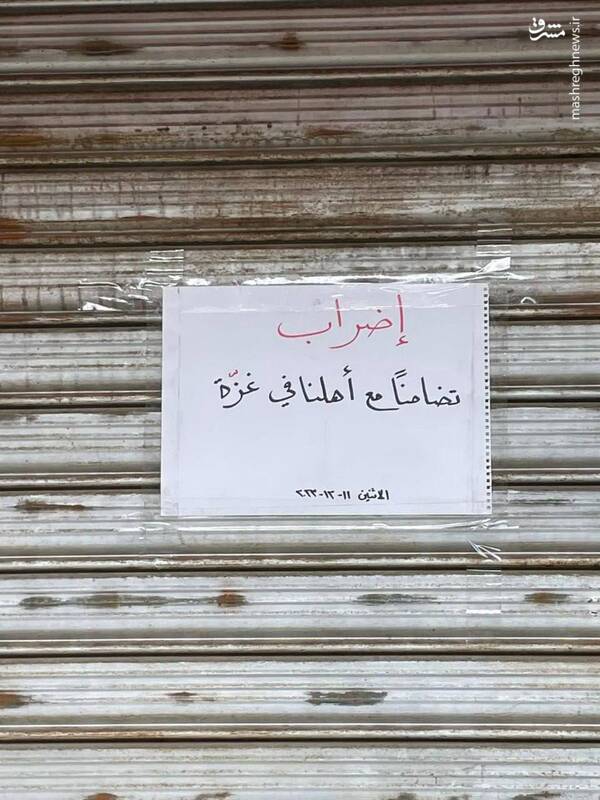 مشرق
mashreghnews.ir
إضراب
تضامناً مع أهلنا في غزّة
الاثنين ١١-١٢-٢٠٢٣